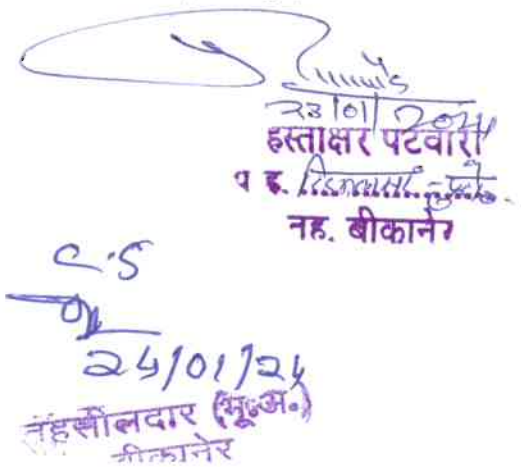 23/01/2024
हस्ताक्षर पटवारी
प ह.
तह. बीकानेर
C.S
24/01/24
तहसीलदार (भू.अ.)
बीकानेर